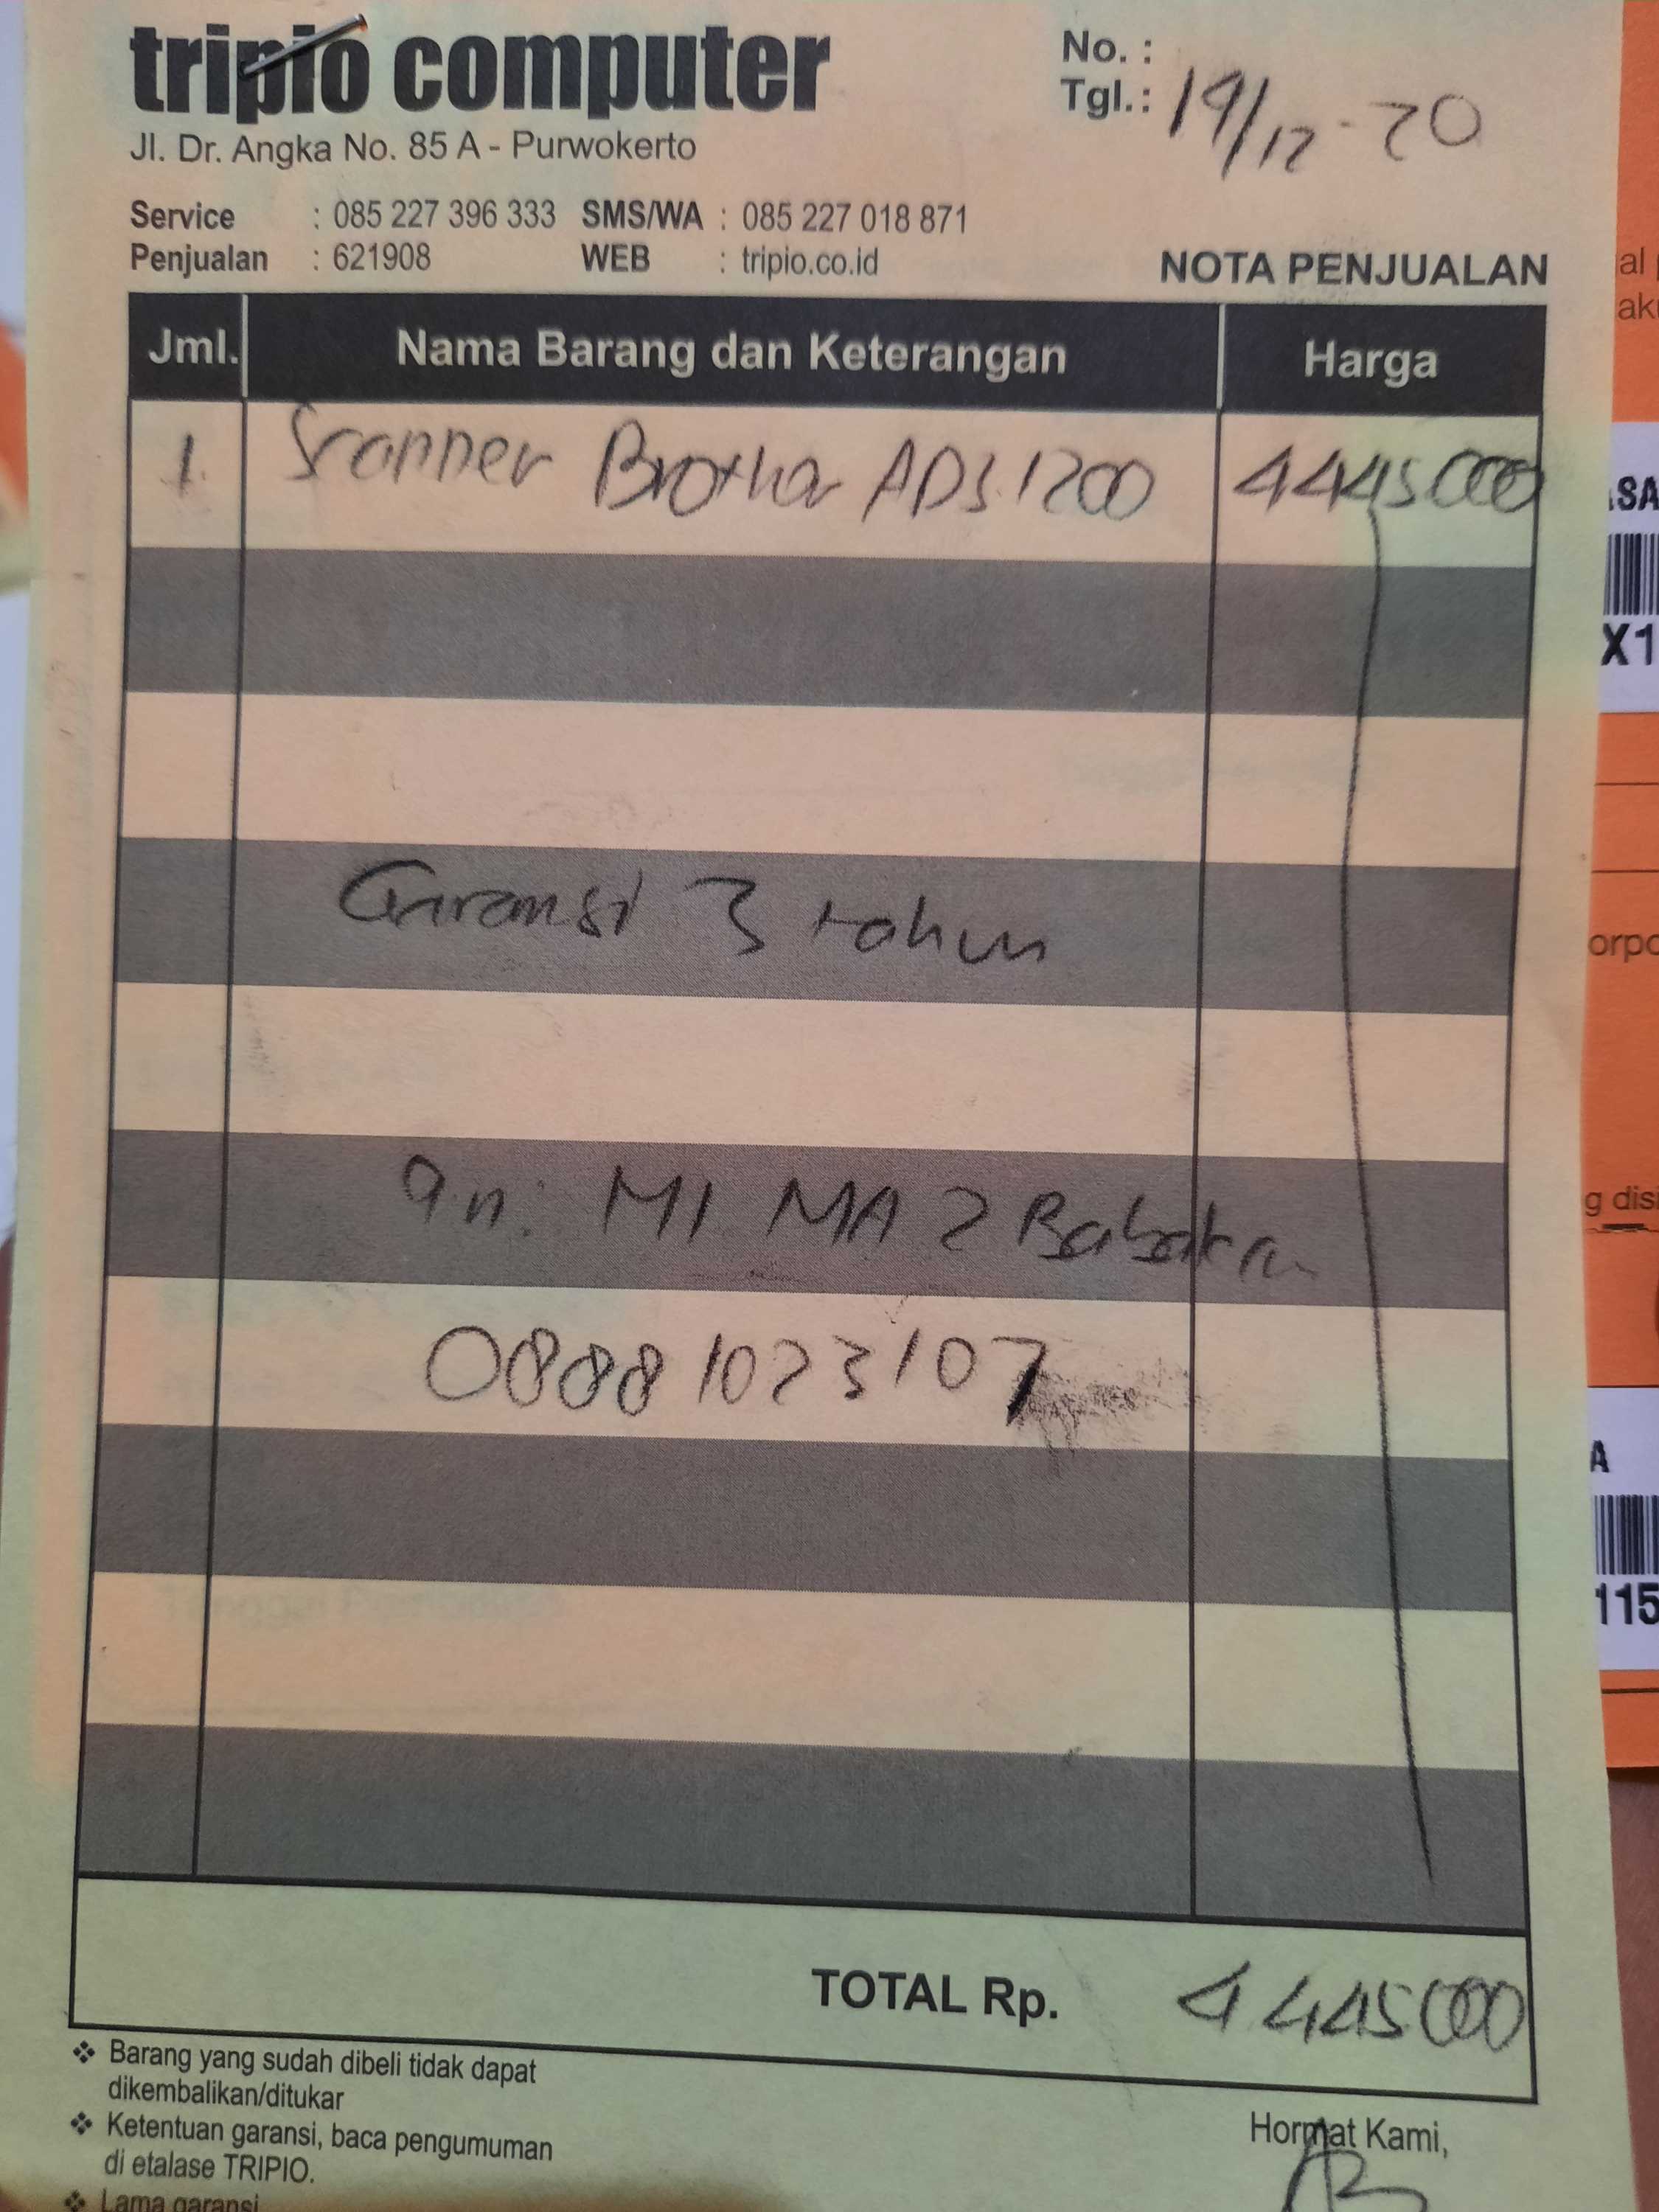 tripio computer
Jl. Dr. Angka No. 85 A - Purwokerto
No. :
Tgl. : 19/12-20
Service : 085 227 396 333 SMS/WA : 085 227 018 871
Penjualan : 621908 WEB : tripio.co.id
NOTA PENJUALAN
Jml. Nama Barang dan Keterangan Harga
1. Scanner Brother ADS.1200 4445000
Garansi 3 tahun
a.n: MI MA 2 Babakan
08881023107
TOTAL Rp. 4445000
❖ Barang yang sudah dibeli tidak dapat
dikembalikan/ditukar
❖ Ketentuan garansi, baca pengumuman
di etalase TRIPIO.
❖ Lama garansi
Hormat Kami,
X1
orpo
g disi
A
115